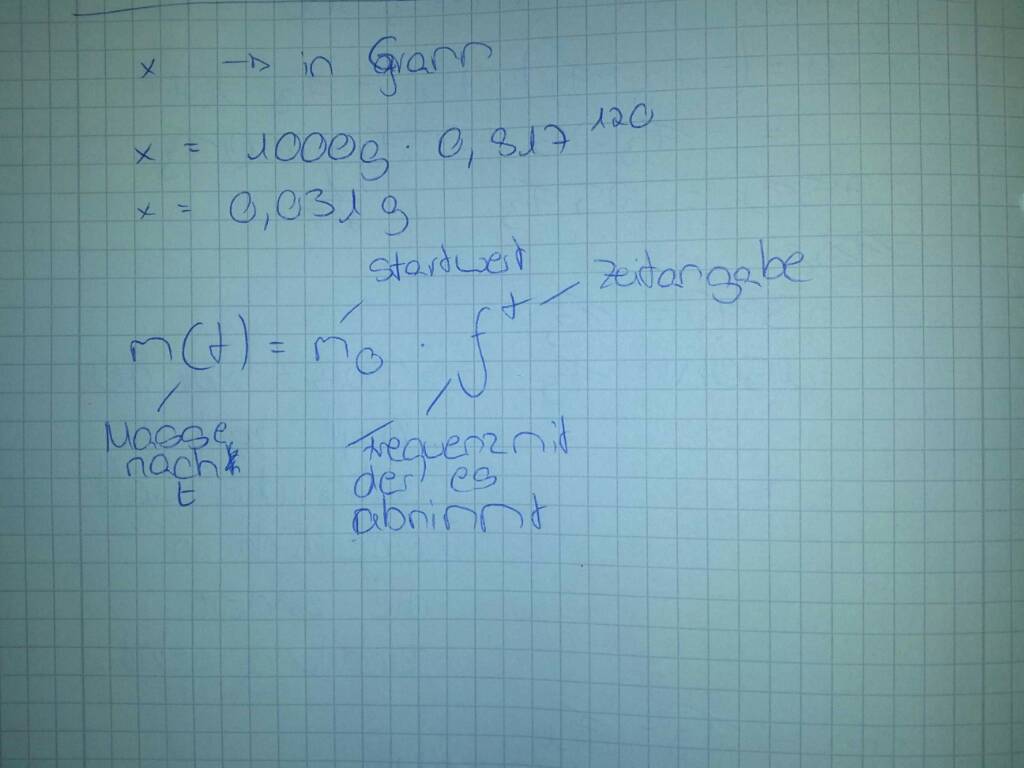 x → in Gramm
x = 1000g · 0,917¹²⁰
x = 0,031 g
startwert
zeitangabe
m(t) = m₀ · fᵗ
Masse
nach
t
Frequenz mit
der es
abnimmt